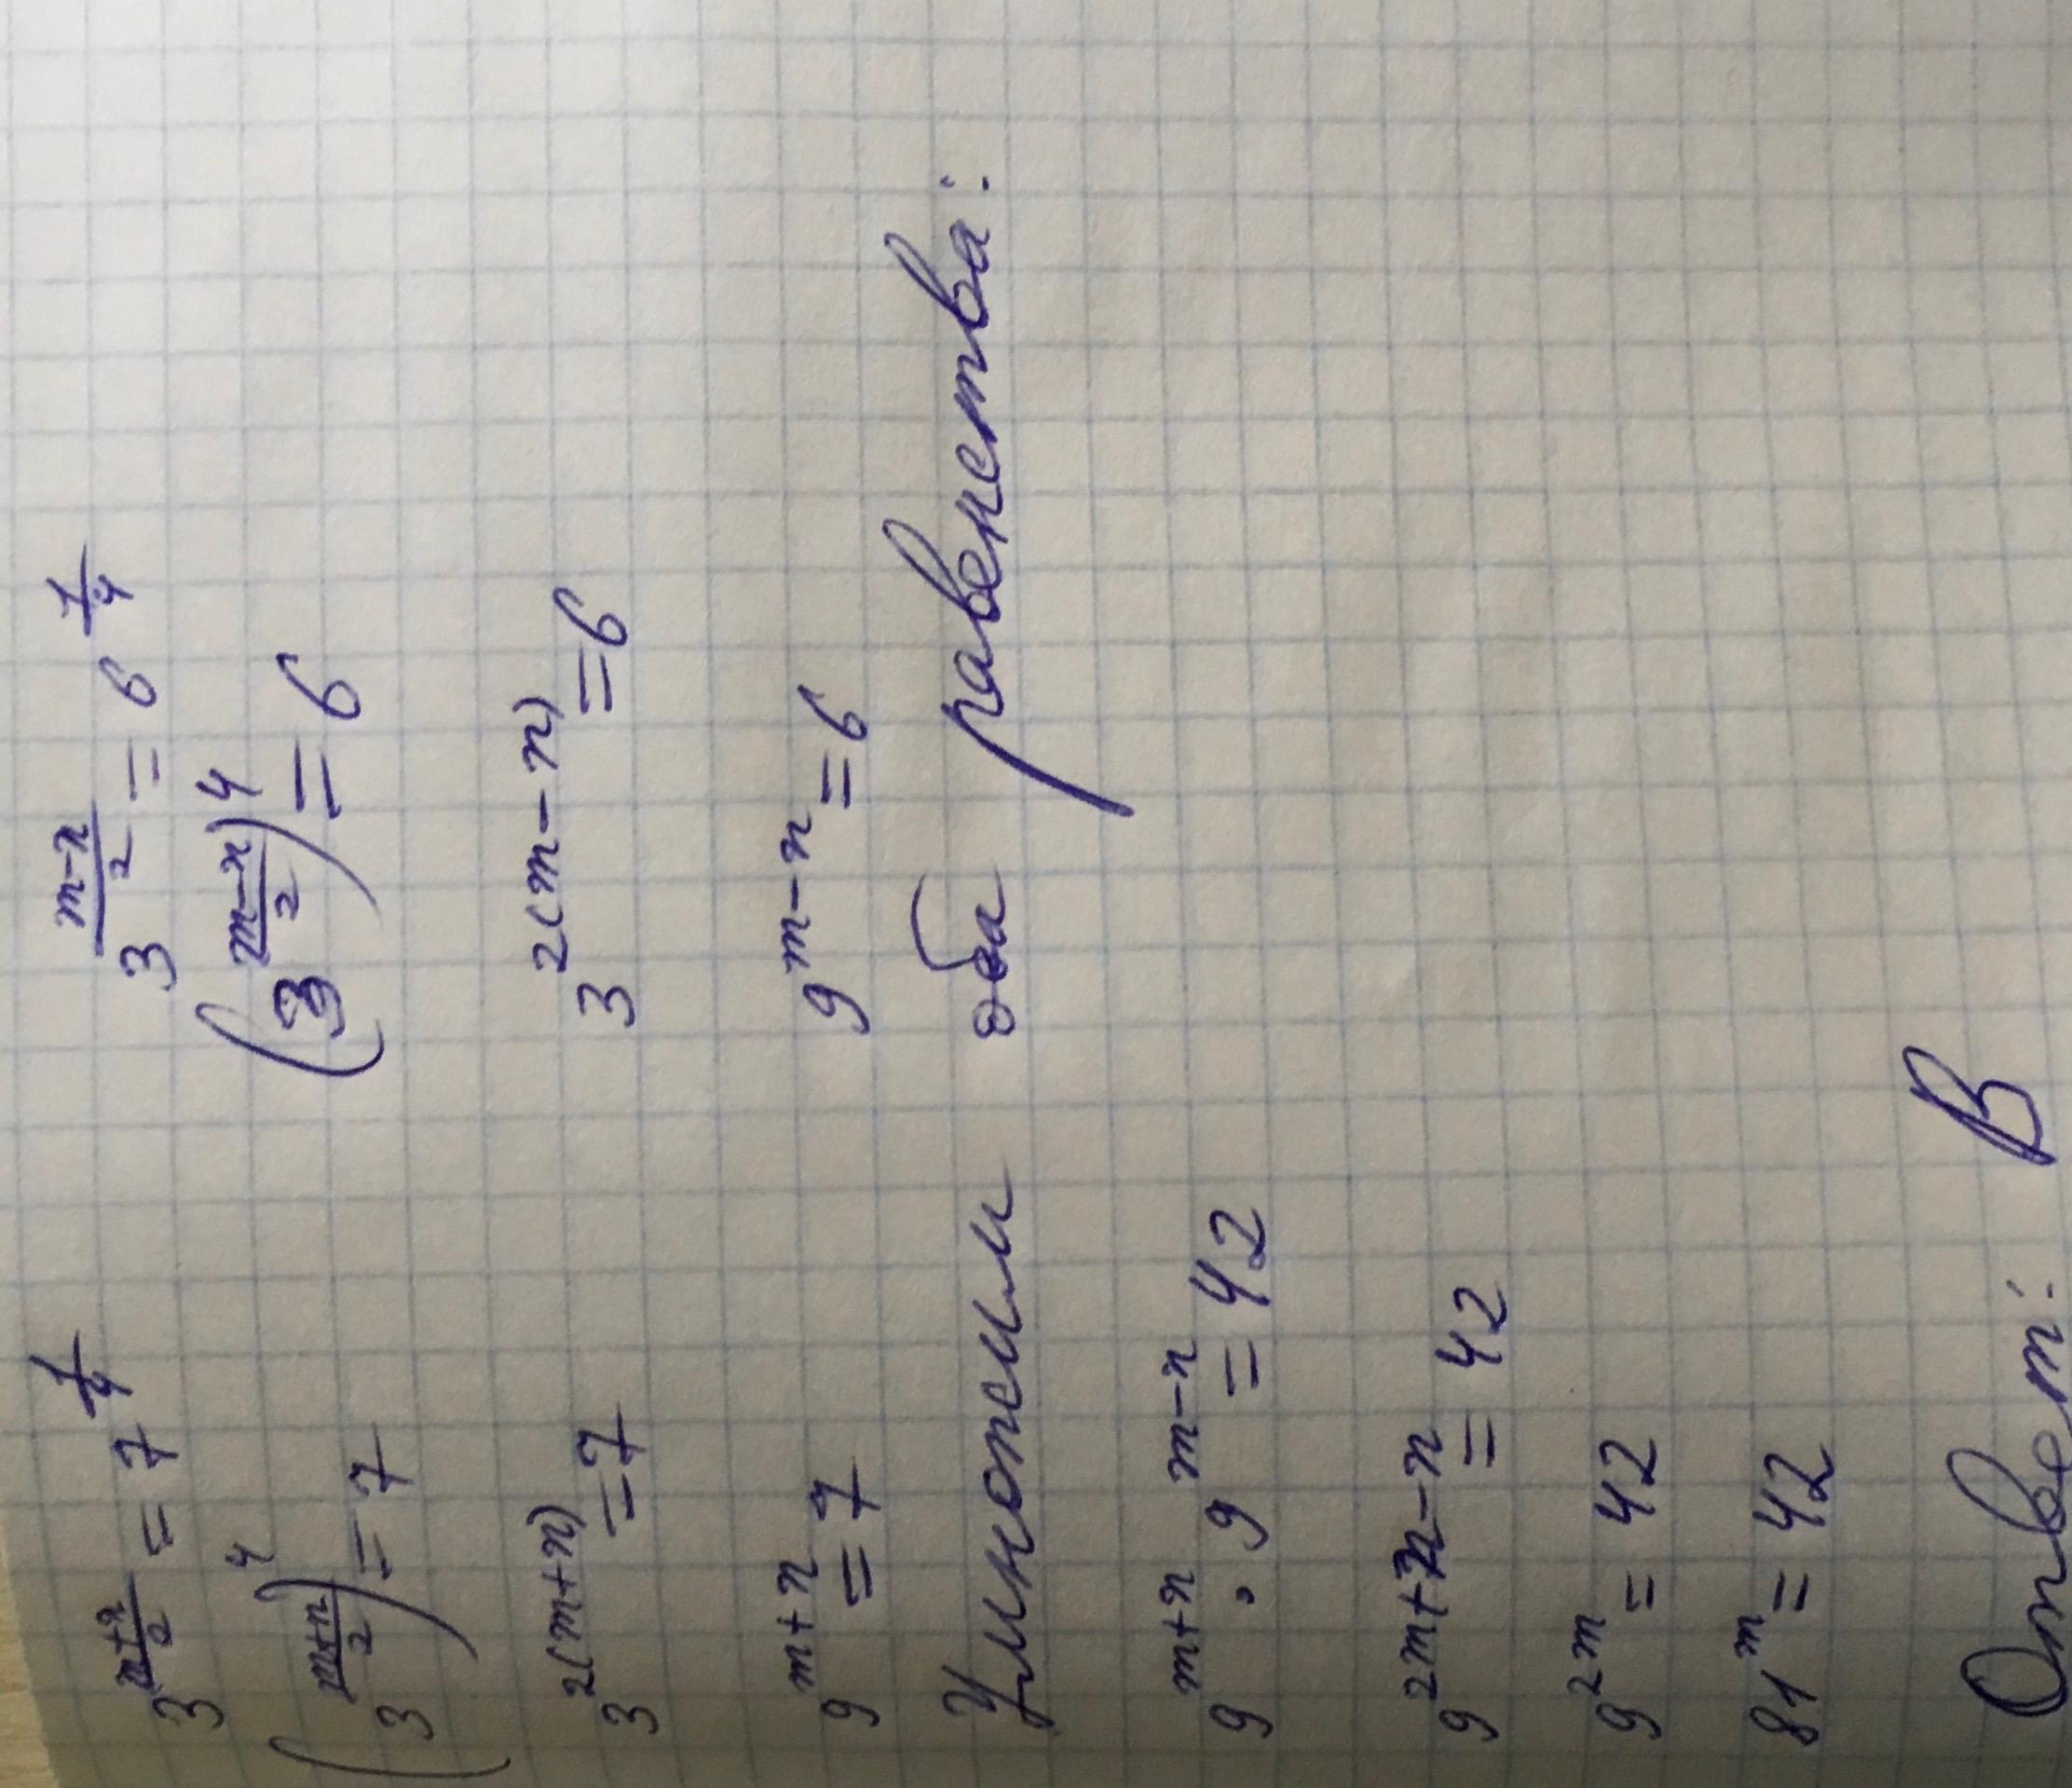 3^{\frac{m+n}{2}} = 7^{\frac{1}{4}} 3^{\frac{m-n}{2}} = 6^{\frac{1}{4}}
(3^{\frac{m+n}{2}})^4 = 7 (3^{\frac{m-n}{2}})^4 = 6
3^{2(m+n)} = 7 3^{2(m-n)} = 6
9^{m+n} = 7 9^{m-n} = 6
Умножим оба равенства:
9^{m+n} · 9^{m-n} = 42
9^{2m+n-n} = 42
9^{2m} = 42
81^m = 42
Ответ: B